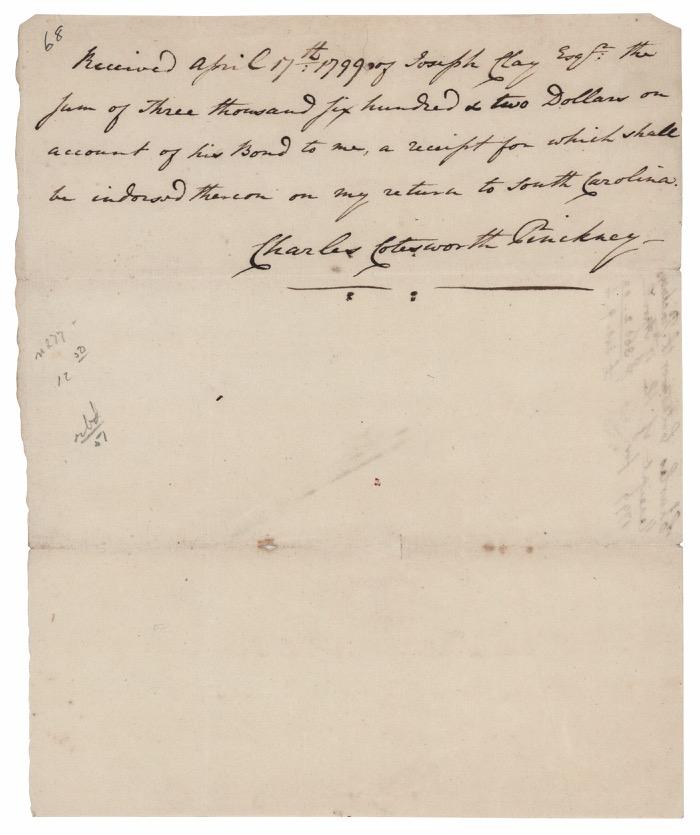 68
Received April 17th 1799 of Joseph Clay Esqr. the
Sum of Three thousand six hundred & two Dollars on
account of his Bond to me, a receipt for which shall
be indorsed thereon on my return to South Carolina.
Charles Cotesworth Pinckney
12